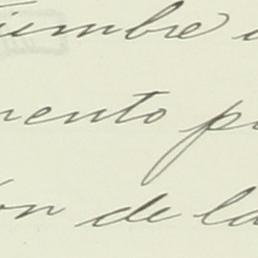 iembre
mento p
ón de la